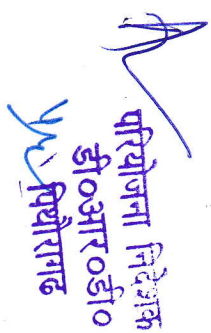 परियोजना निदेशक
डी०आर०डी०
पिथौरागढ